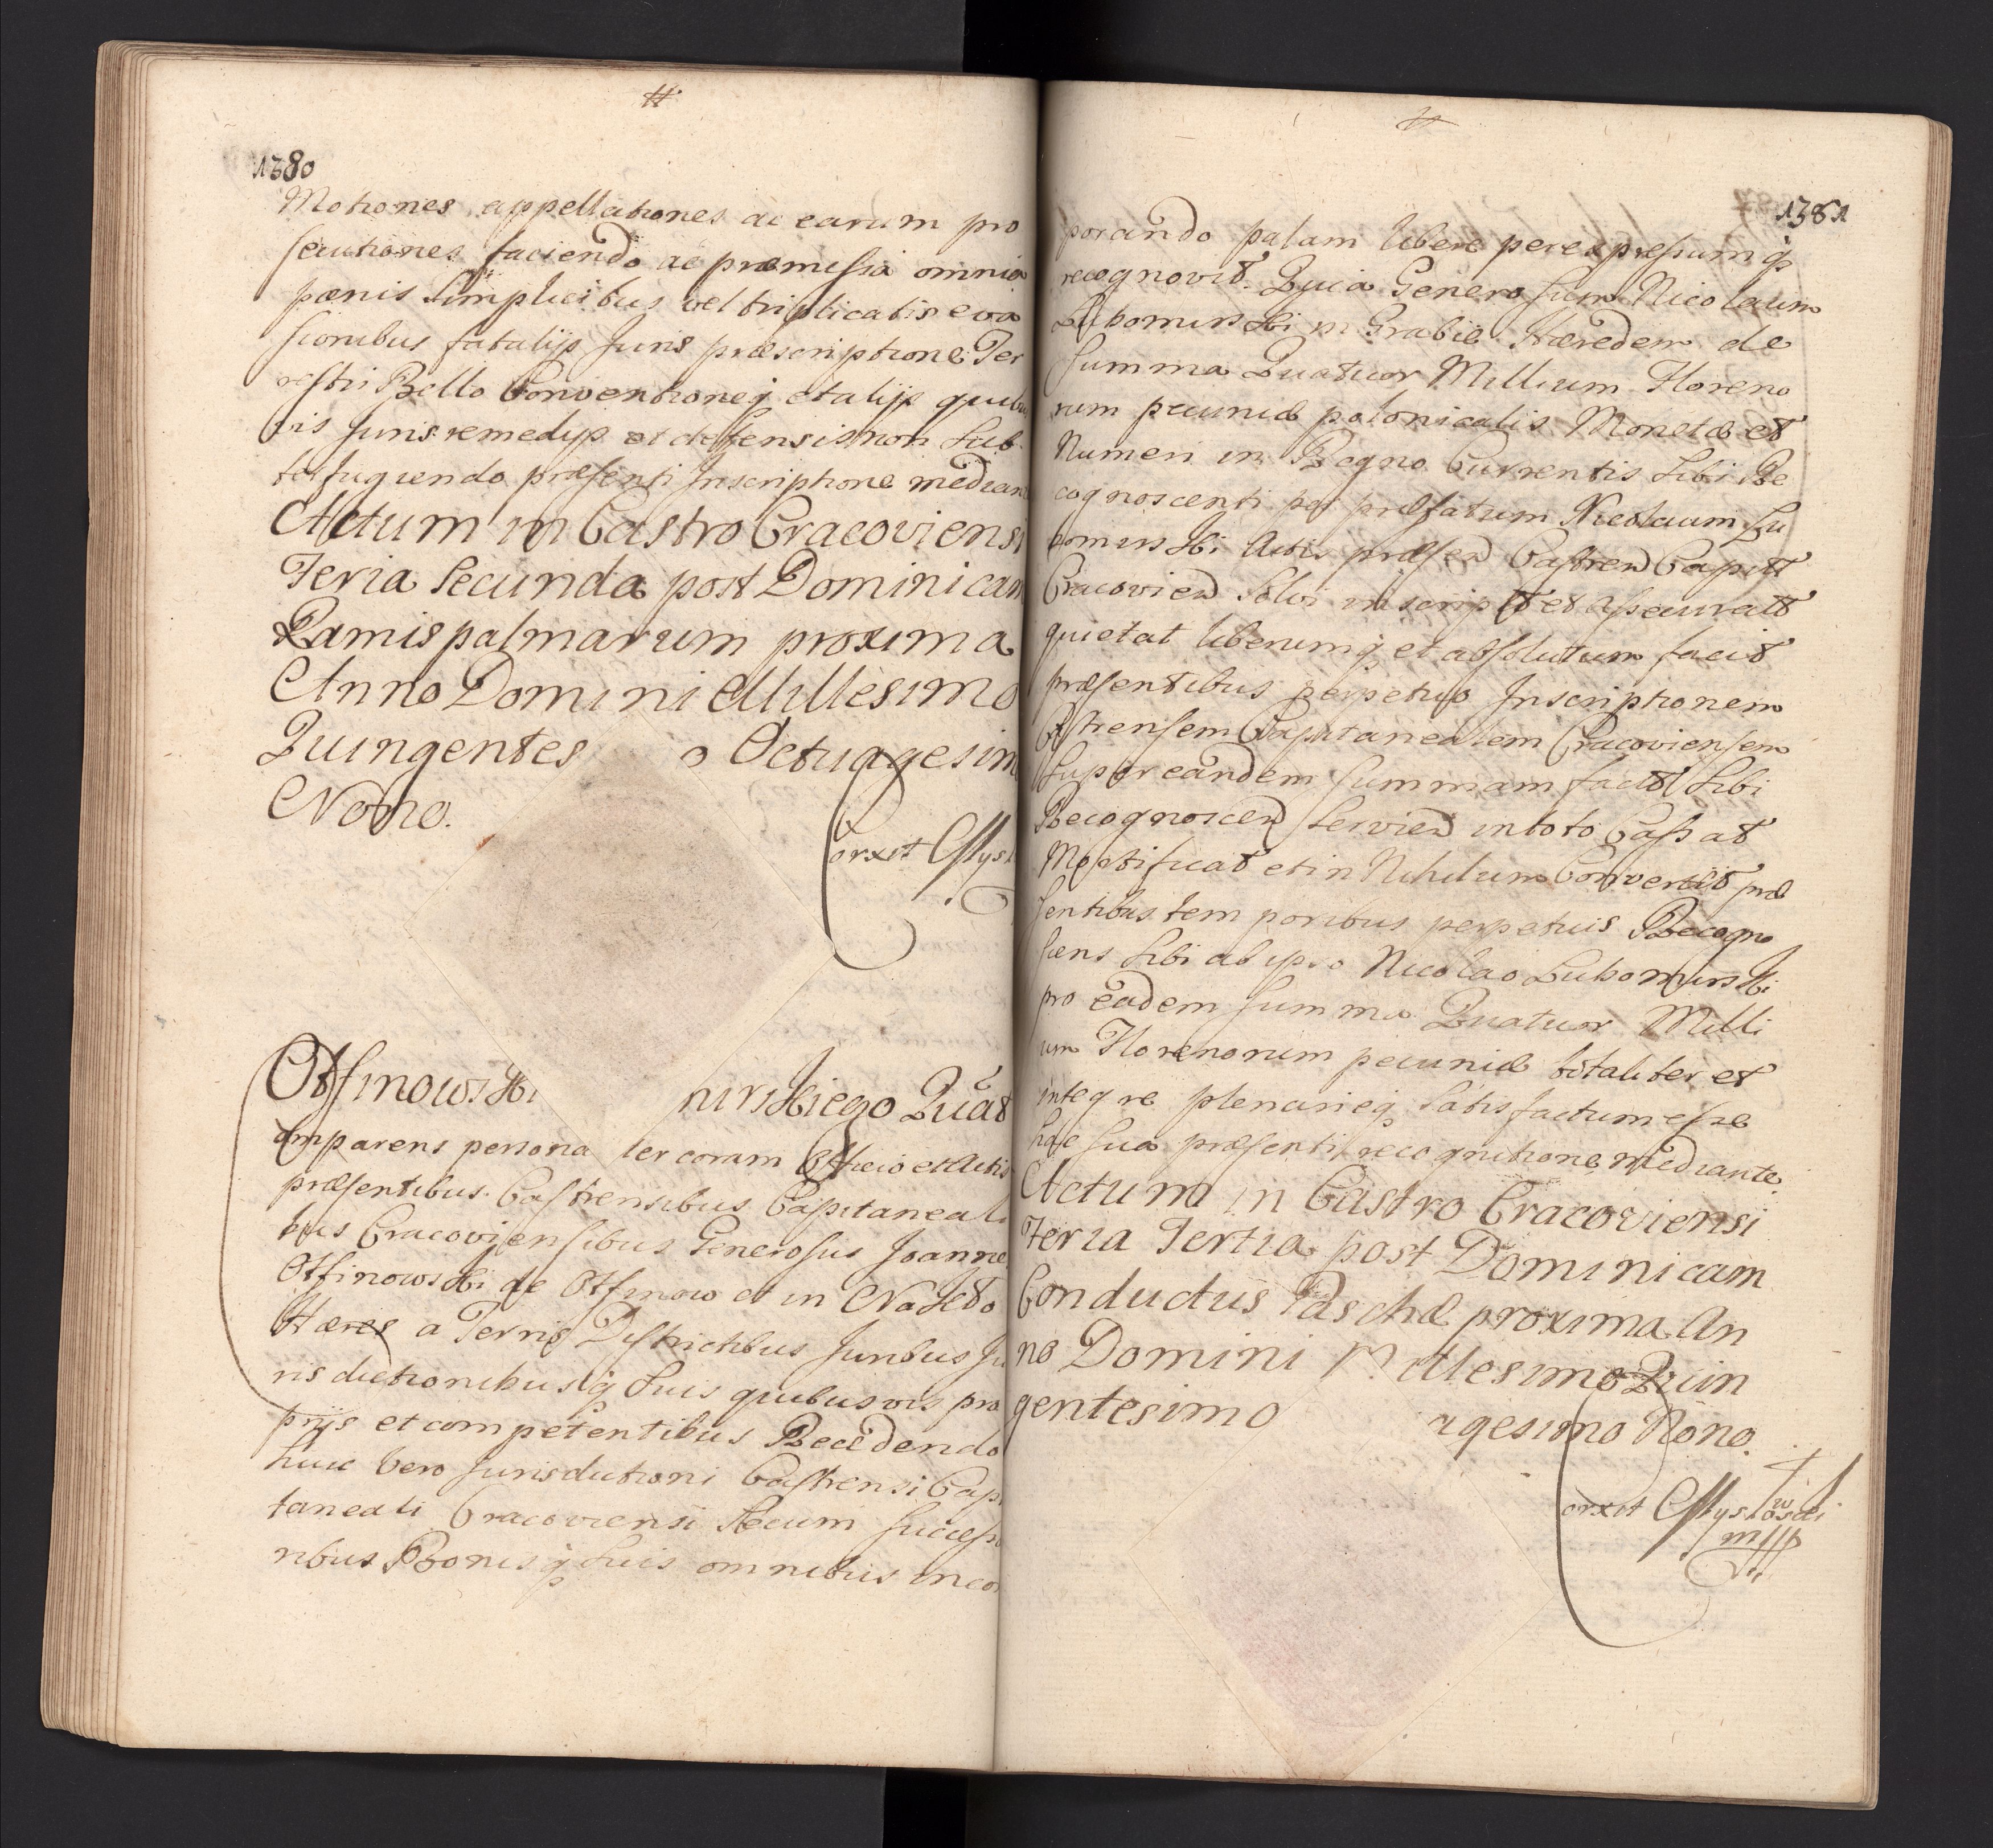 #
1380
Motiones appellationes ac earum pro
secutiones faciendo ac præmissa omnia
pænis simplicibus vel triplicatis eva
sionibus fatalijs Juris præscriptione Ter
restri Bello Conventioneq et alijs quibus
vis Juris remedijs et defensis non Sub
terfugiendo præsenti Inscriptione median
Actum in Castro Cracoviensi
Feria Secunda post Dominicam
Ramispalmarum proxima
Anno Domini Millesimo
Quingentes o Octuagesim
Nono.
Corxit Mys
Otfinowski mirskiego Quat
Comparens persona ter coram Officio et Actis
præsentibus Castrensibus Capitaneali
bus Cracoviensibus Generosus Joanne
Otfinowski de Otfinow et in
Hæres a Terris Districtibus Juribus Ju
risdictionibusq Suis quibusvis pro
prijs et competentibus Recedendo
huic vero Jurisdictioni Castrensi Capi
taneali Cracoviensi Secum Successo
ribus Bonisq Suis omnibus incor
#
1381
porando palam libere per expressumq
recognovit. Quia Generosum Nicolaum
Lubomirski in Grabie Hæredem de
Summa Quatuor Millium Floreno
rum pecuniæ polonicalis Monetæ et
Numeri in Regno Currentis Sibi Re
cognoscenti per præfatum Nicolaum Lu
bomirski Actis præsen Castren Capitt
Cracovien Solvi inscript et assecuratt
quietat liberumq et absolutum facit
præsentibus perpetuo Inscriptionem
Castrensem Capitanealem Cracoviensem
Super eandem summam factt Sibi
Recognoscen servien in toto Cassat
Mortificat et in Nihilum Convertit præ
sentibus temporibus perpetuis Recogno
scens Sibi ab ipso Nicolao Lubomirski
pro eadem summa Quatuor Milli
um Florenorum pecuniæ totaliter et
integre plenarieq Satisfactum esse
hac sua præsenti recognitione mediante.
Actum in Castro Cracoviensi
Feria Tertia post Dominicam
Conductus Paschæ proxima An
no Domini Millesimo Quin
gentesimo agesimo Nono.
Corxit Myskowski
mpp